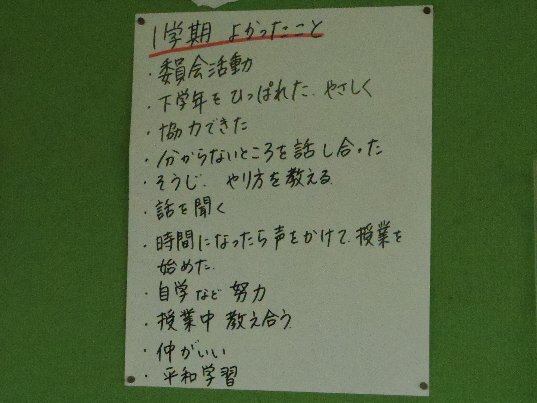 1学期 よかったこと
・委員会活動
・下学年をひっぱれた、やさしく
・協力できた
・分からないところを話し合った
・そうじ、やり方を教える
・話を聞く
・時間になったら声をかけて、授業を
始めた
・自学など努力
・授業中 教え合う
・仲がいい
・平和学習